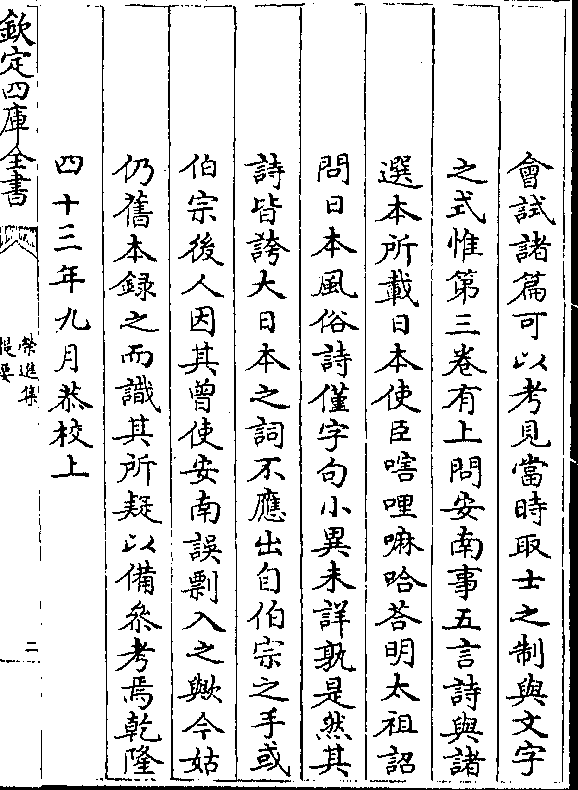 會試諸篇可以考見當時取士之制與文字
之式惟第三卷有上問安南事五言詩與諸
選本所載日本使臣嗐哩嘛哈荅明太祖詔
問日本風俗詩僅字句小異未詳孰是然其
詩皆誇大日本之詞不應出自伯宗之手或
伯宗後人因其曾使安南誤剽入之歟今姑
仍舊本録之而識其所疑以備叅考焉乾隆
四十三年九月恭校上
欽定四庫全書
榮進集
提要
二